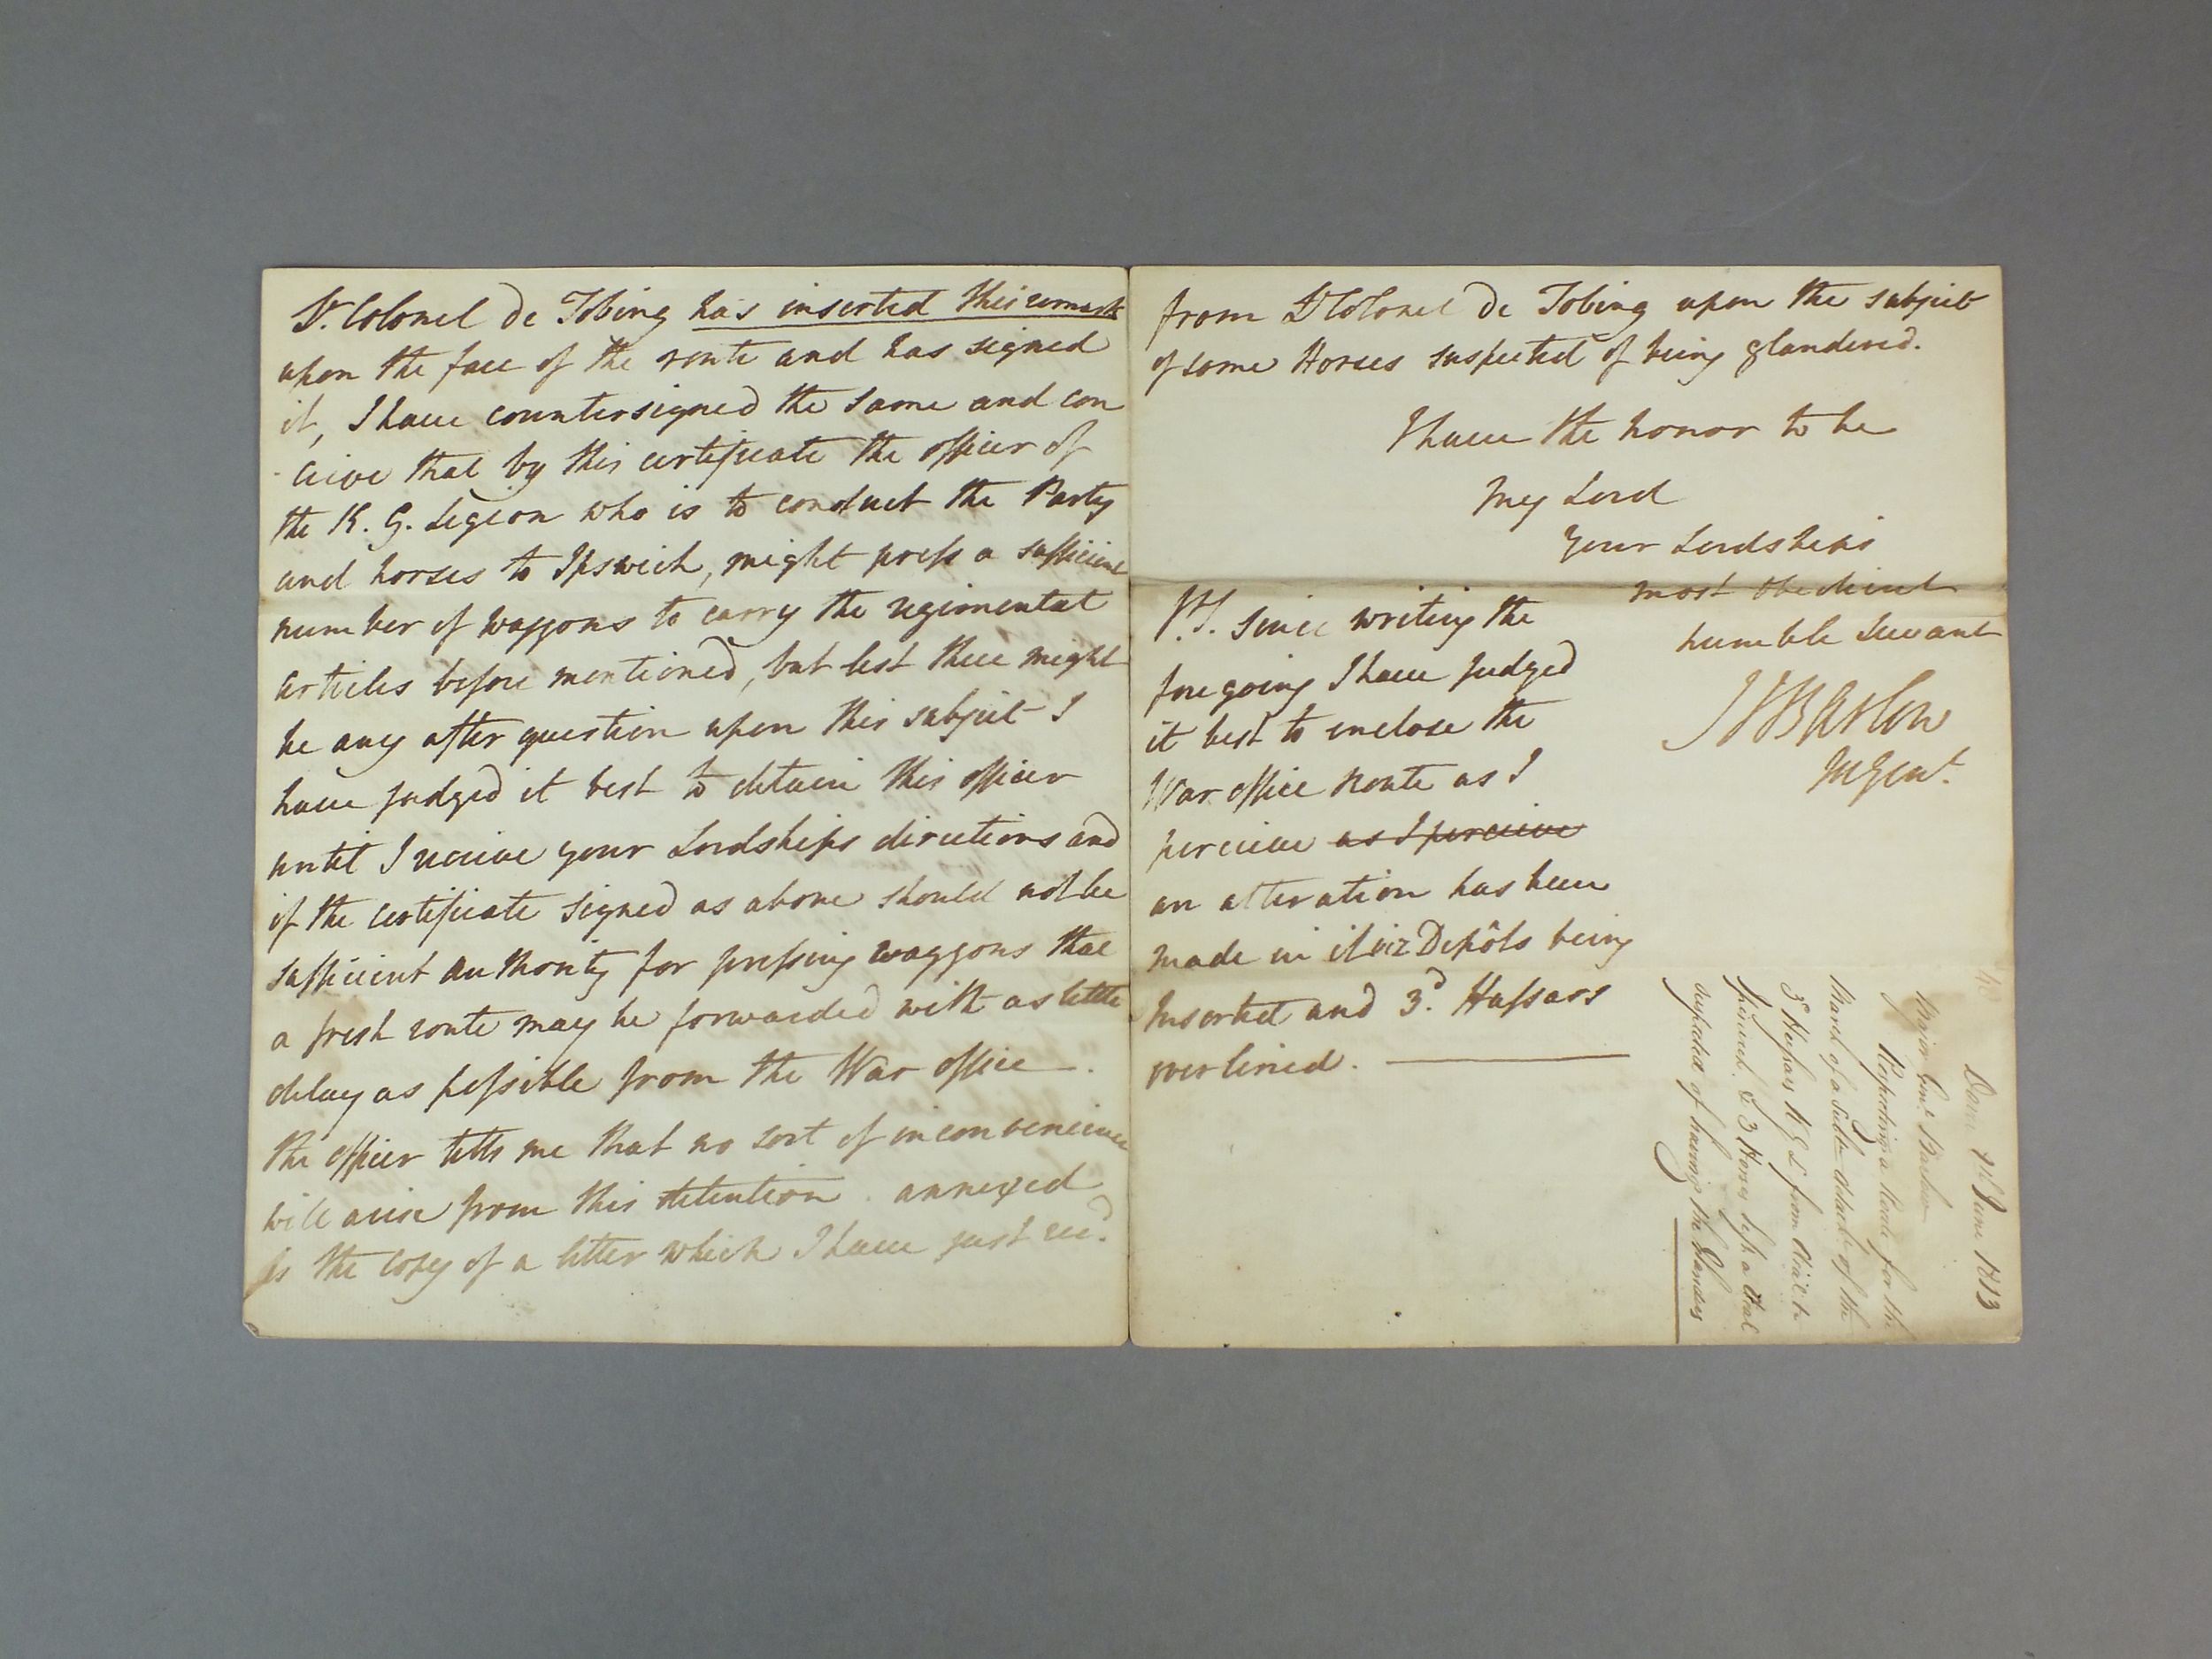 Lt. Colonel de Jobing has inserted this remark
upon the face of the route and has signed
it, I have countersigned the same and con
-ceive that by this certificate the officer of
the K. G. Legion who is to conduct the Party
and horses to Ipswich, might press a sufficient
number of waggons to carry the regimental
articles before mentioned, but lest there might
be any after question upon this subject I
have judged it best to detain this officer
until I receive your Lordships directions and
if the certificate signed as above should not be
sufficient authority for pressing waggons that
a fresh route may be forwarded with as little
delay as possible from the War office.
the officer tells me that no sort of inconvenience
will arise from this detention. annexed
is the copy of a letter which I have just recd.
from Lt Colonel de Jobing upon the subject
of some Horses suspected of being glandered.
I have the honor to be
My Lord
your Lordships
most obedient
humble Servant
Barlow
M Genl.
P.S. Since writing the
foregoing I have judged
it best to enclose the
War office route as I
perceive as I perceive
an alteration has been
made in it viz Depôts being
inserted and 3d. Hussars
overlined.
June 1813
Major Genl. Barlow
Respecting a Route for the
March of a detacht. of the
3d Hussars K G L from
Ipswich & 3 Horses left
suspected of having the Glanders